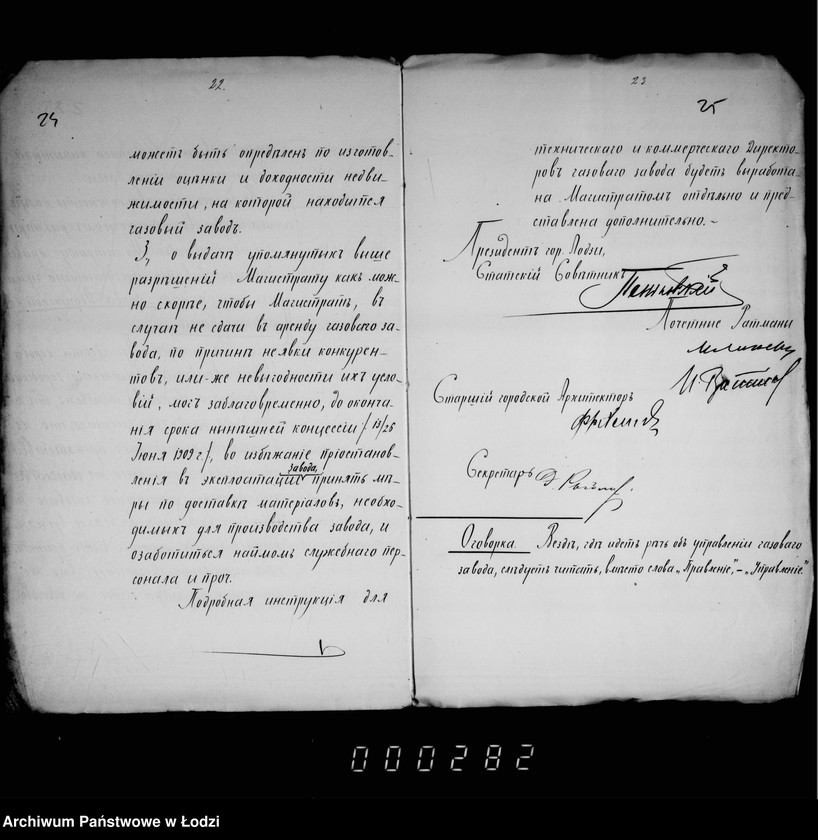 22.
24
можетъ быть опредѣленъ по изготов-
леніи оцѣнки и доходности недви-
жимости, на которой находится
газовый заводъ.
3, о выдачѣ упомянутыхъ выше
разрѣшеній Магистрату какъ мож-
но скорѣе, чтобы Магистратъ, въ
случаѣ не сдачи въ аренду газоваго за-
вода, по причинѣ неявки конкурен-
товъ, или-же невыгодности ихъ усло-
вій, могъ заблаговременно, до оконча-
нія срока нынѣшней концессіи /13/26
Іюня 1909 г./, во избѣжаніе пріостанов-
завода,
ленія въ эксплоатаціи принять мѣ-
ры по доставкѣ матеріаловъ, необхо-
димыхъ для производства завода, и
озаботиться наймомъ служебнаго пер-
сонала и проч.
Подробная инструкція для
23
25
техническаго и коммерческаго Директо-
ровъ газоваго завода будетъ выработа-
на Магистратомъ отдѣльно и пред-
ставлена дополнительно.-
Президентъ гор. Лодзи,
Статскій Совѣтникъ
Почетные Ратманы
Старшій городской Архитекторъ
Секретарь
Оговорка. Вездѣ, гдѣ идетъ рѣчь объ управленіи газоваго
завода, слѣдуетъ читать, вмѣсто слова „Правленіе," – „Управленіе."
000282
Archiwum Państwowe w Łodzi